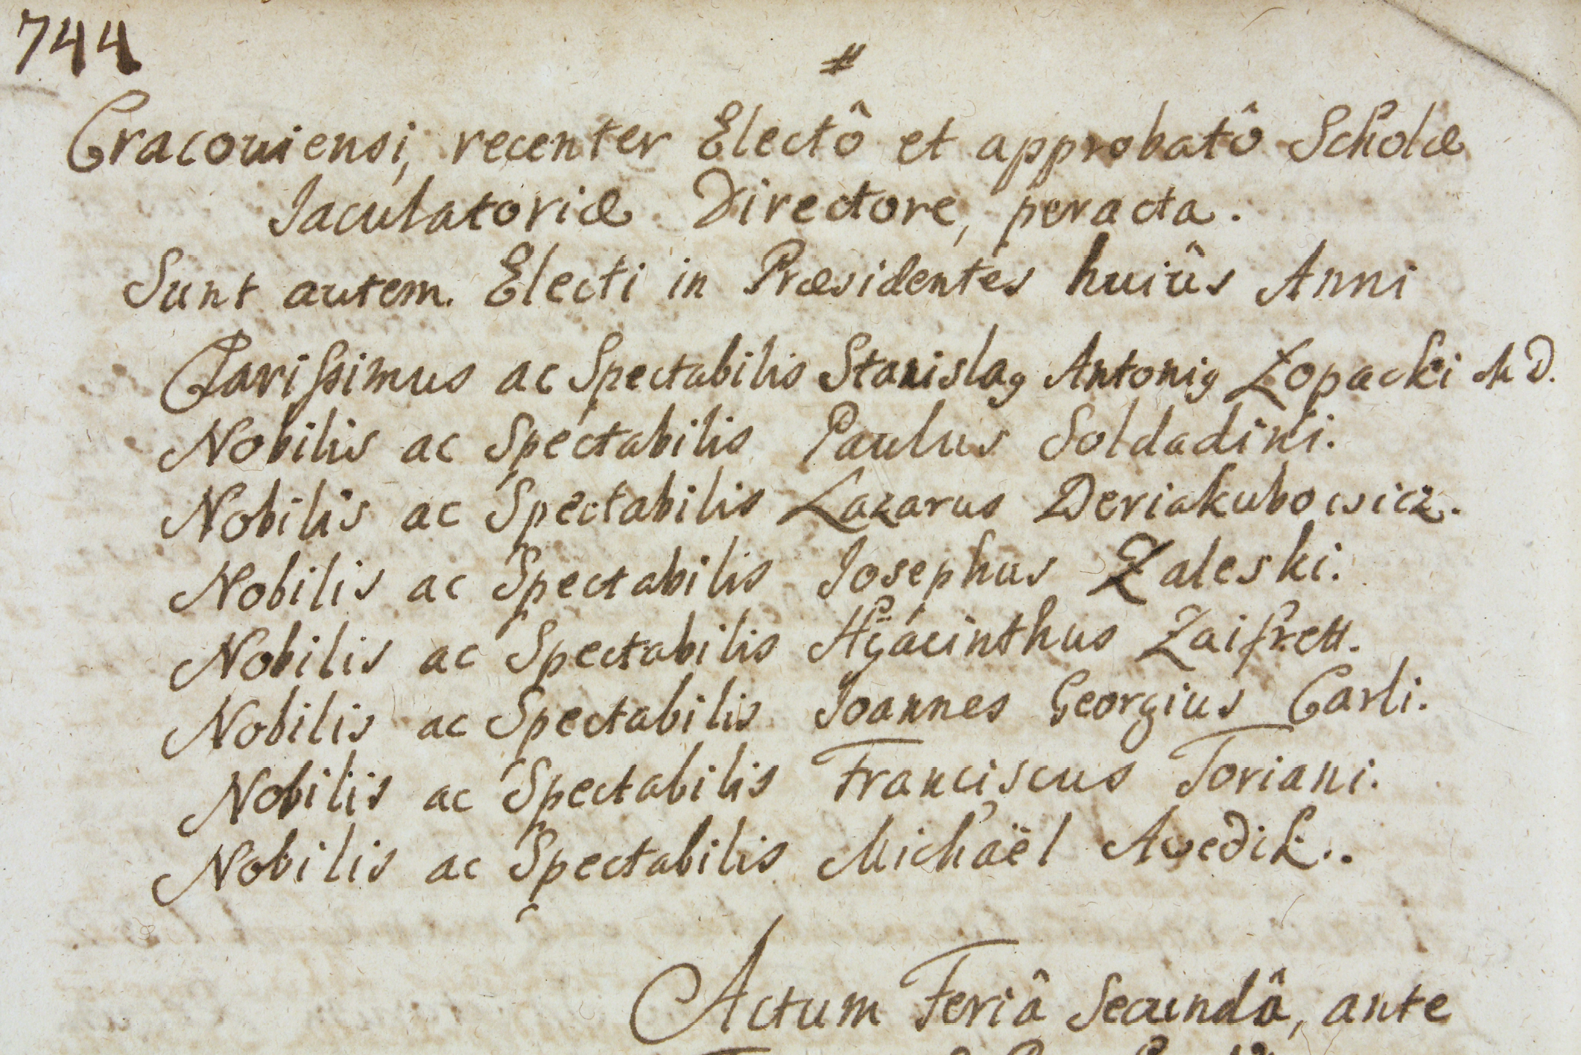 744
#
Cracoviensi, recenter Electô et approbatô Scholæ
Jaculatoriæ Directore, peracta.
Sunt autem Electi in Præsidentes huiûs Anni
Clarissimus ac Spectabilis Stanislaꝯ Antoniꝯ Lopacki M D.
Nobilis ac Spectabilis Paulus Soldadini.
Nobilis ac Spectabilis Lazarus Deriakubowicz.
Nobilis ac Spectabilis Josephus Zaleski.
Nobilis ac Spectabilis Hÿacinthus Zaifrett.
Nobilis ac Spectabilis Joannes Georgius Carli.
Nobilis ac Spectabilis Franciscus Toriani.
Nobilis ac Spectabilis Michaël Awedik.
Actum Feriâ Secundâ, ante